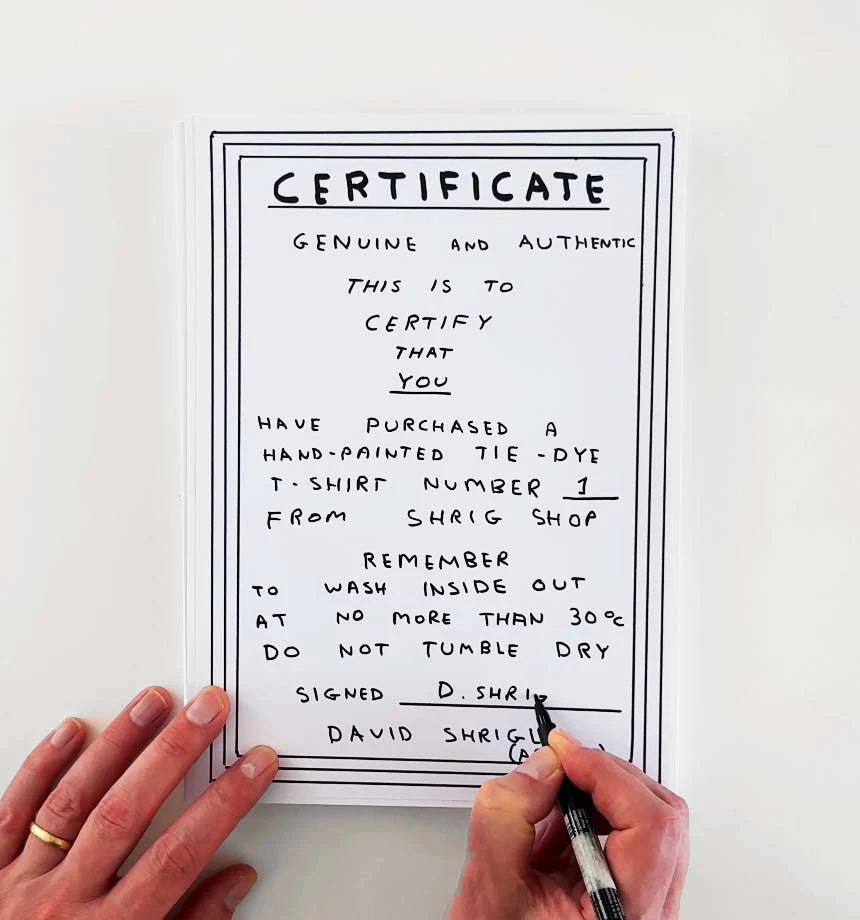 CERTIFICATE
GENUINE AND AUTHENTIC
THIS IS TO
CERTIFY
THAT
YOU
HAVE PURCHASED A
HAND-PAINTED TIE-DYE
T-SHIRT NUMBER 1
FROM SHRIG SHOP
REMEMBER
TO WASH INSIDE OUT
AT NO MORE THAN 30°C
DO NOT TUMBLE DRY
SIGNED D. SHRIG
DAVID